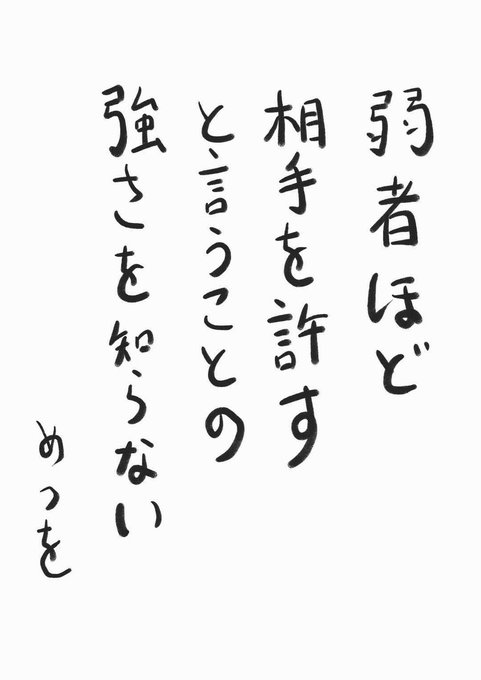 弱者ほど
相手を許す
と言うことの
強さを知らない
めっを